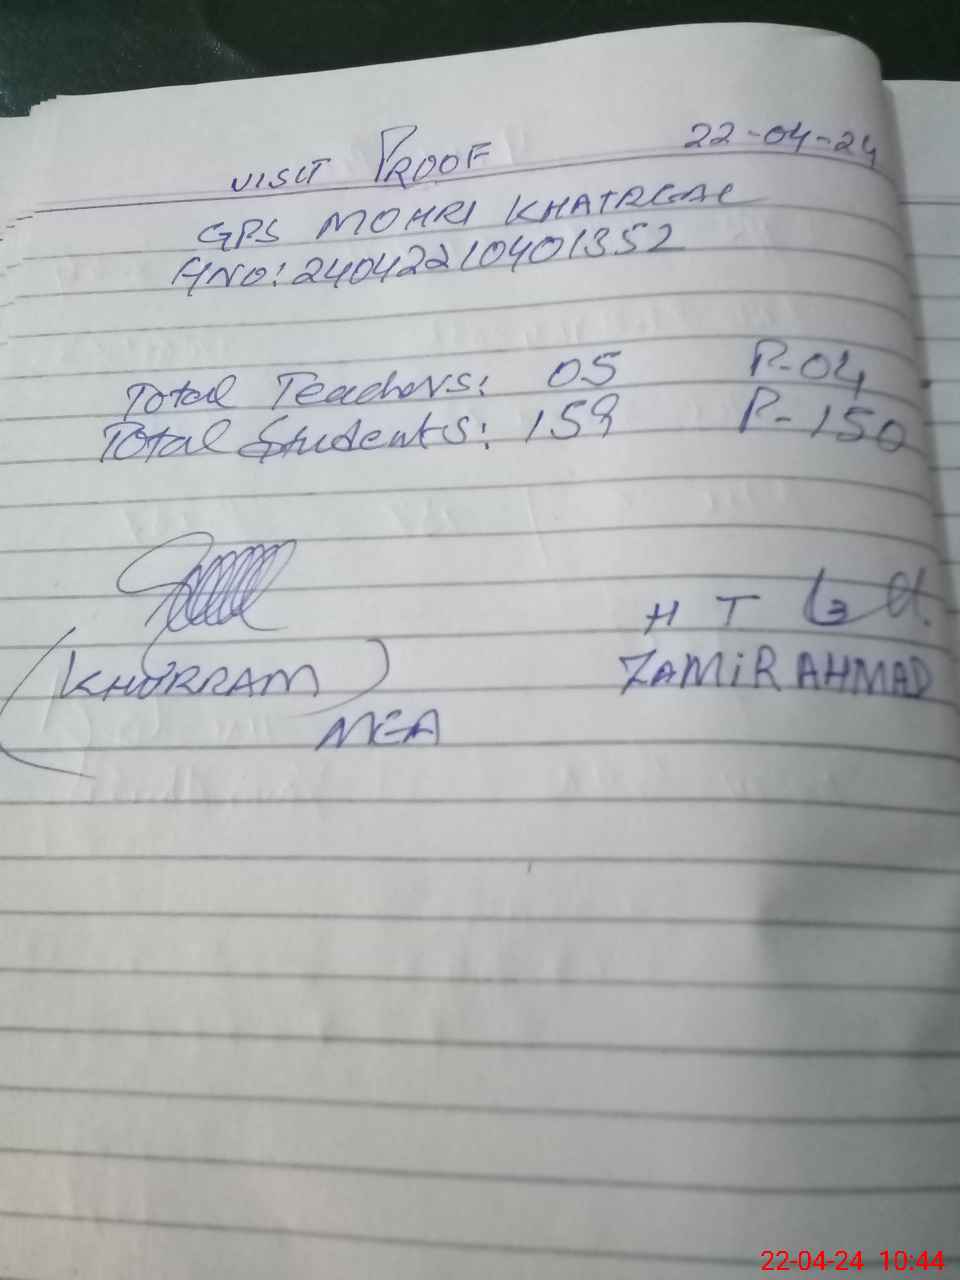 VISIT PROOF 22-04-24
GPS MOHRI KHATRGAL
ANO: 24042210401352
Total Teachers: 05 P-04
Total Students: 159 P-150
H T
(KHURRAM) ZAMIR AHMAD
MEA
22-04-24 10:44